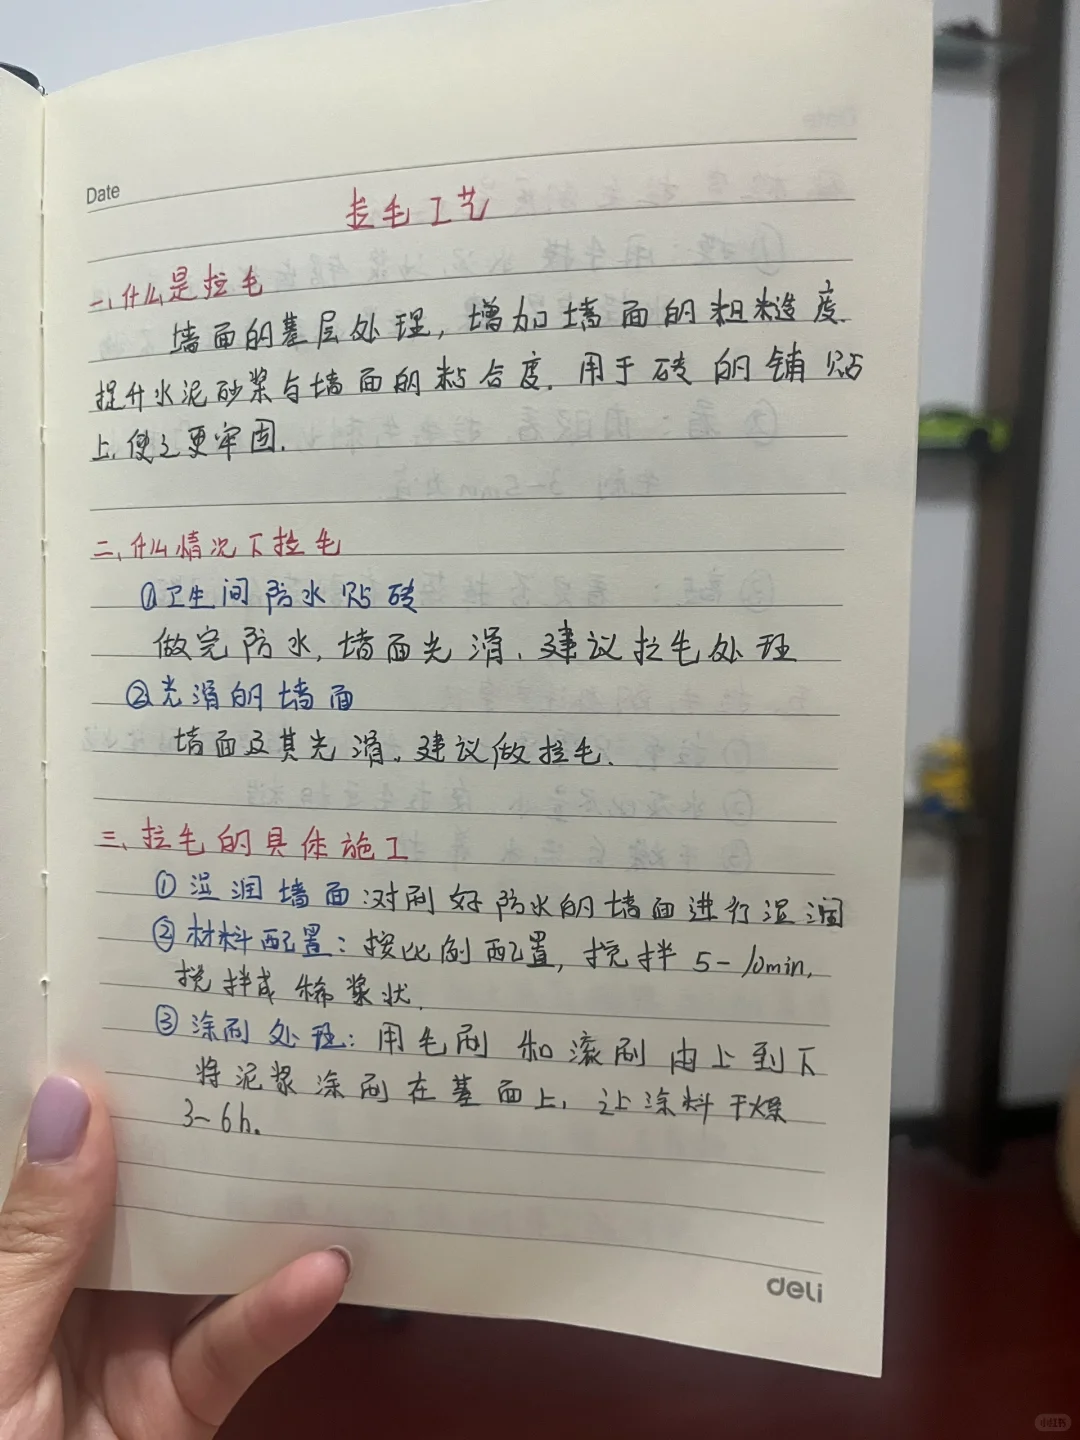 Date
拉毛工艺
一、什么是拉毛
墙面的基层处理，增加墙面的粗糙度.
提升水泥砂浆与墙面的粘合度.用于砖的铺贴
上,使之更牢固.
二、什么情况下拉毛
①卫生间防水贴砖
做完防水,墙面光滑、建议拉毛处理
②光滑的墙面
墙面及其光滑。建议做拉毛.
三、拉毛的具体施工
①湿润墙面:对刷好防水的墙面进行湿润
②材料配置：按比例配置，搅拌5-10min,
搅拌成稀浆状.
③涂刷处理：用毛刷和滚刷由上到下
将泥浆涂刷在基面上,让涂料干燥
3-6h。
deli